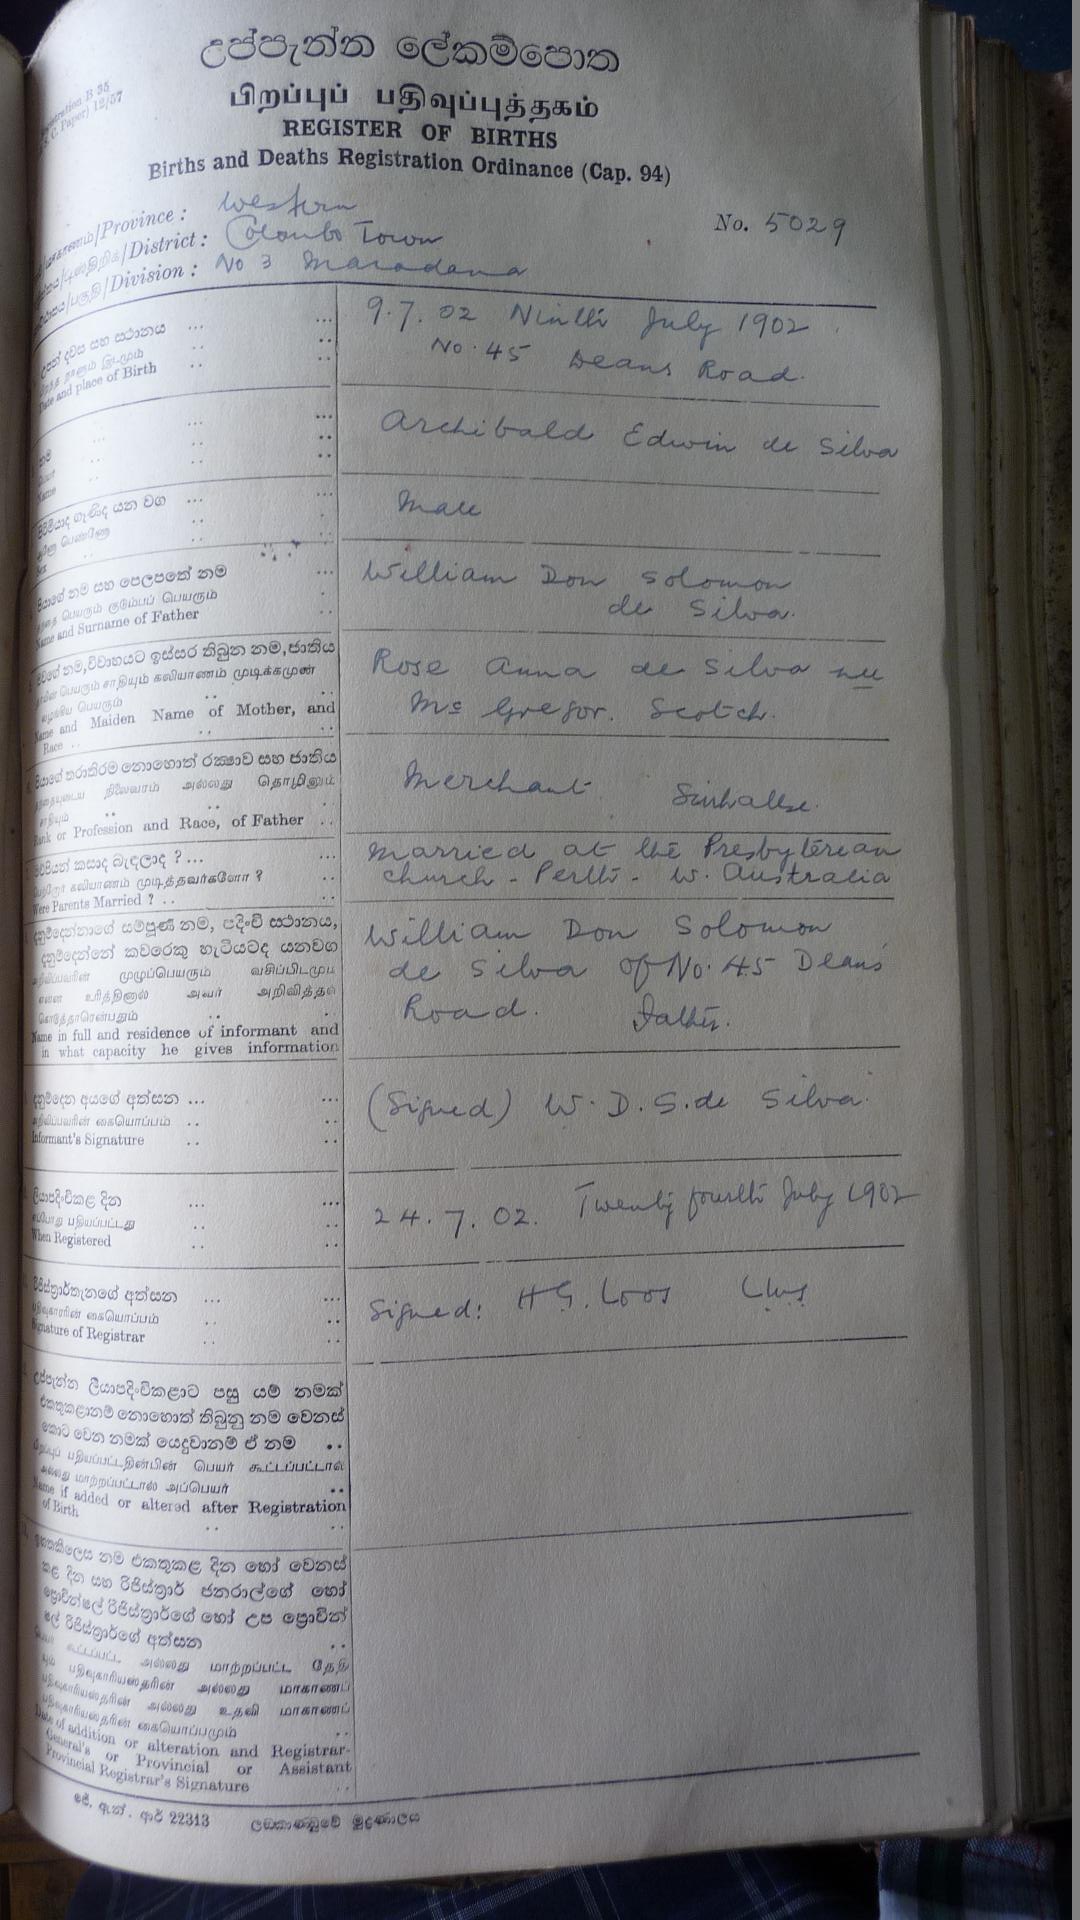 උප්පැන්න ලේකම්පොත
பிறப்புப் பதிவுப்புத்தகம்
REGISTER OF BIRTHS
Births and Deaths Registration Ordinance (Cap. 94)
Registration B 35
12/57
/Province : Western
No. 5029
/District : Colombo Town
/Division : No 3 Maradana
උපන් දවස සහ ස්ථානය ... ...
Date and place of Birth
9.7.02 Ninth July 1902
No. 45 Deans Road.
Name
Archibald Edwin de Silva
Male
පියාගේ නම සහ පෙලපතේ නම ...
Name and Surname of Father
William Don Solomon
de Silva.
මවගේ නම, විවාහයට ඉස්සර තිබුන නම, ජාතිය
Name and Maiden Name of Mother, and
Race
Rose Anna de Silva nee
Mc Gregor. Scotch.
පියාගේ තරාතිරම නොහොත් රක්ෂාව සහ ජාතිය
Rank or Profession and Race, of Father ..
Merchant Sinhalese.
Were Parents Married ? ..
Married at the Presbyterian
Church - Perth - W. Australia
දනුම්දෙන්නාගේ සම්පූර්ණ නම, පදිංචි ස්ථානය,
දනුම්දෙන්නේ කවරෙකු හැටියටද යනවග
அறிவிப்பவரின் முழுப்பெயரும் வசிப்பிடமும்
Name in full and residence of informant and
in what capacity he gives information
William Don Solomon
de Silva of No. 45 Deans
Road. Father.
දනුම්දෙන අයගේ අත්සන ... ...
அறிவிப்பவரின் கையொப்பம் ..
Informant's Signature ..
(Signed) W. D. S. de Silva.
ලියාපදිංචිකළ දින ... ...
When Registered ..
24.7.02. Twenty fourth July 1902
රෙජිස්ත්‍රාර්තැනගේ අත්සන ... ...
Signature of Registrar ..
Signed: H G. Loos
උප්පැන්න ලියාපදිංචිකළාට පසු යම් නමක්
එකතුකළානම් නොහොත් තිබුනු නම වෙනස්
කොට වෙන නමක් යෙදුවානම් ඒ නම ..
Name if added or altered after Registration
of Birth
නම එකතුකළ දින හෝ වෙනස්
කළ දින සහ රිජිස්ත්‍රාර් ජනරාල්ගේ හෝ
ප්‍රොවින්ෂල් රිජිස්ත්‍රාර්ගේ හෝ උප ප්‍රොවින්
ෂල් රිජිස්ත්‍රාර්ගේ අත්සන
Date of addition or alteration and Registrar-
General's or Provincial or Assistant
Provincial Registrar's Signature
ජේ. ඇන්. ආර් 22313 ලංකාණ්ඩුවේ මුද්‍රණාලය